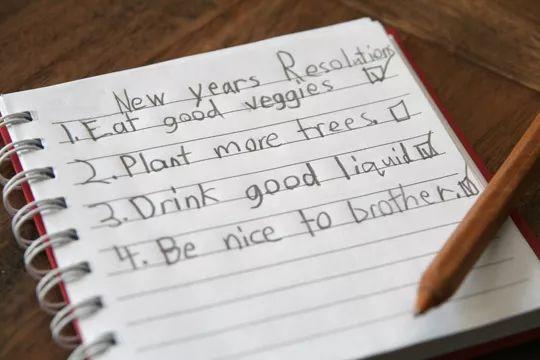 New years Resolutions
1. Eat good veggies
2. Plant more trees.
3. Drink good liquid
4. Be nice to brother.